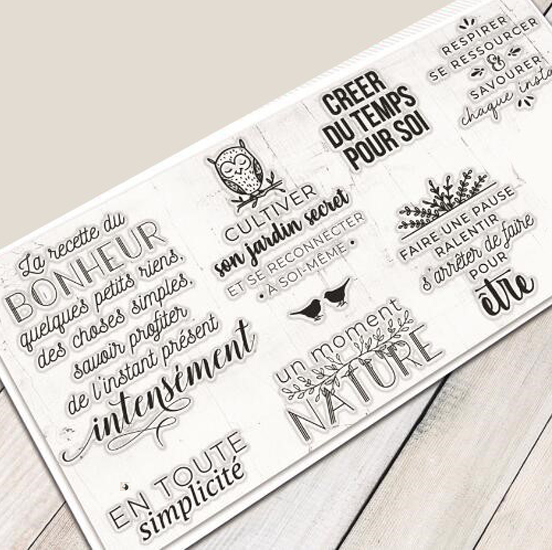 La recette du
BONHEUR
quelques petits riens,
des choses simples,
savoir profiter
de l'instant présent
intensément
EN TOUTE
simplicité
CULTIVER
son jardin secret
ET SE RECONNECTER
• À SOI-MÊME •
un moment
NATURE
CRÉER
DU TEMPS
POUR SOI
RESPIRER
SE RESSOURCER
&
SAVOURER
chaque insta
FAIRE UNE PAUSE
RALENTIR
s'arrêter de faire
POUR
être